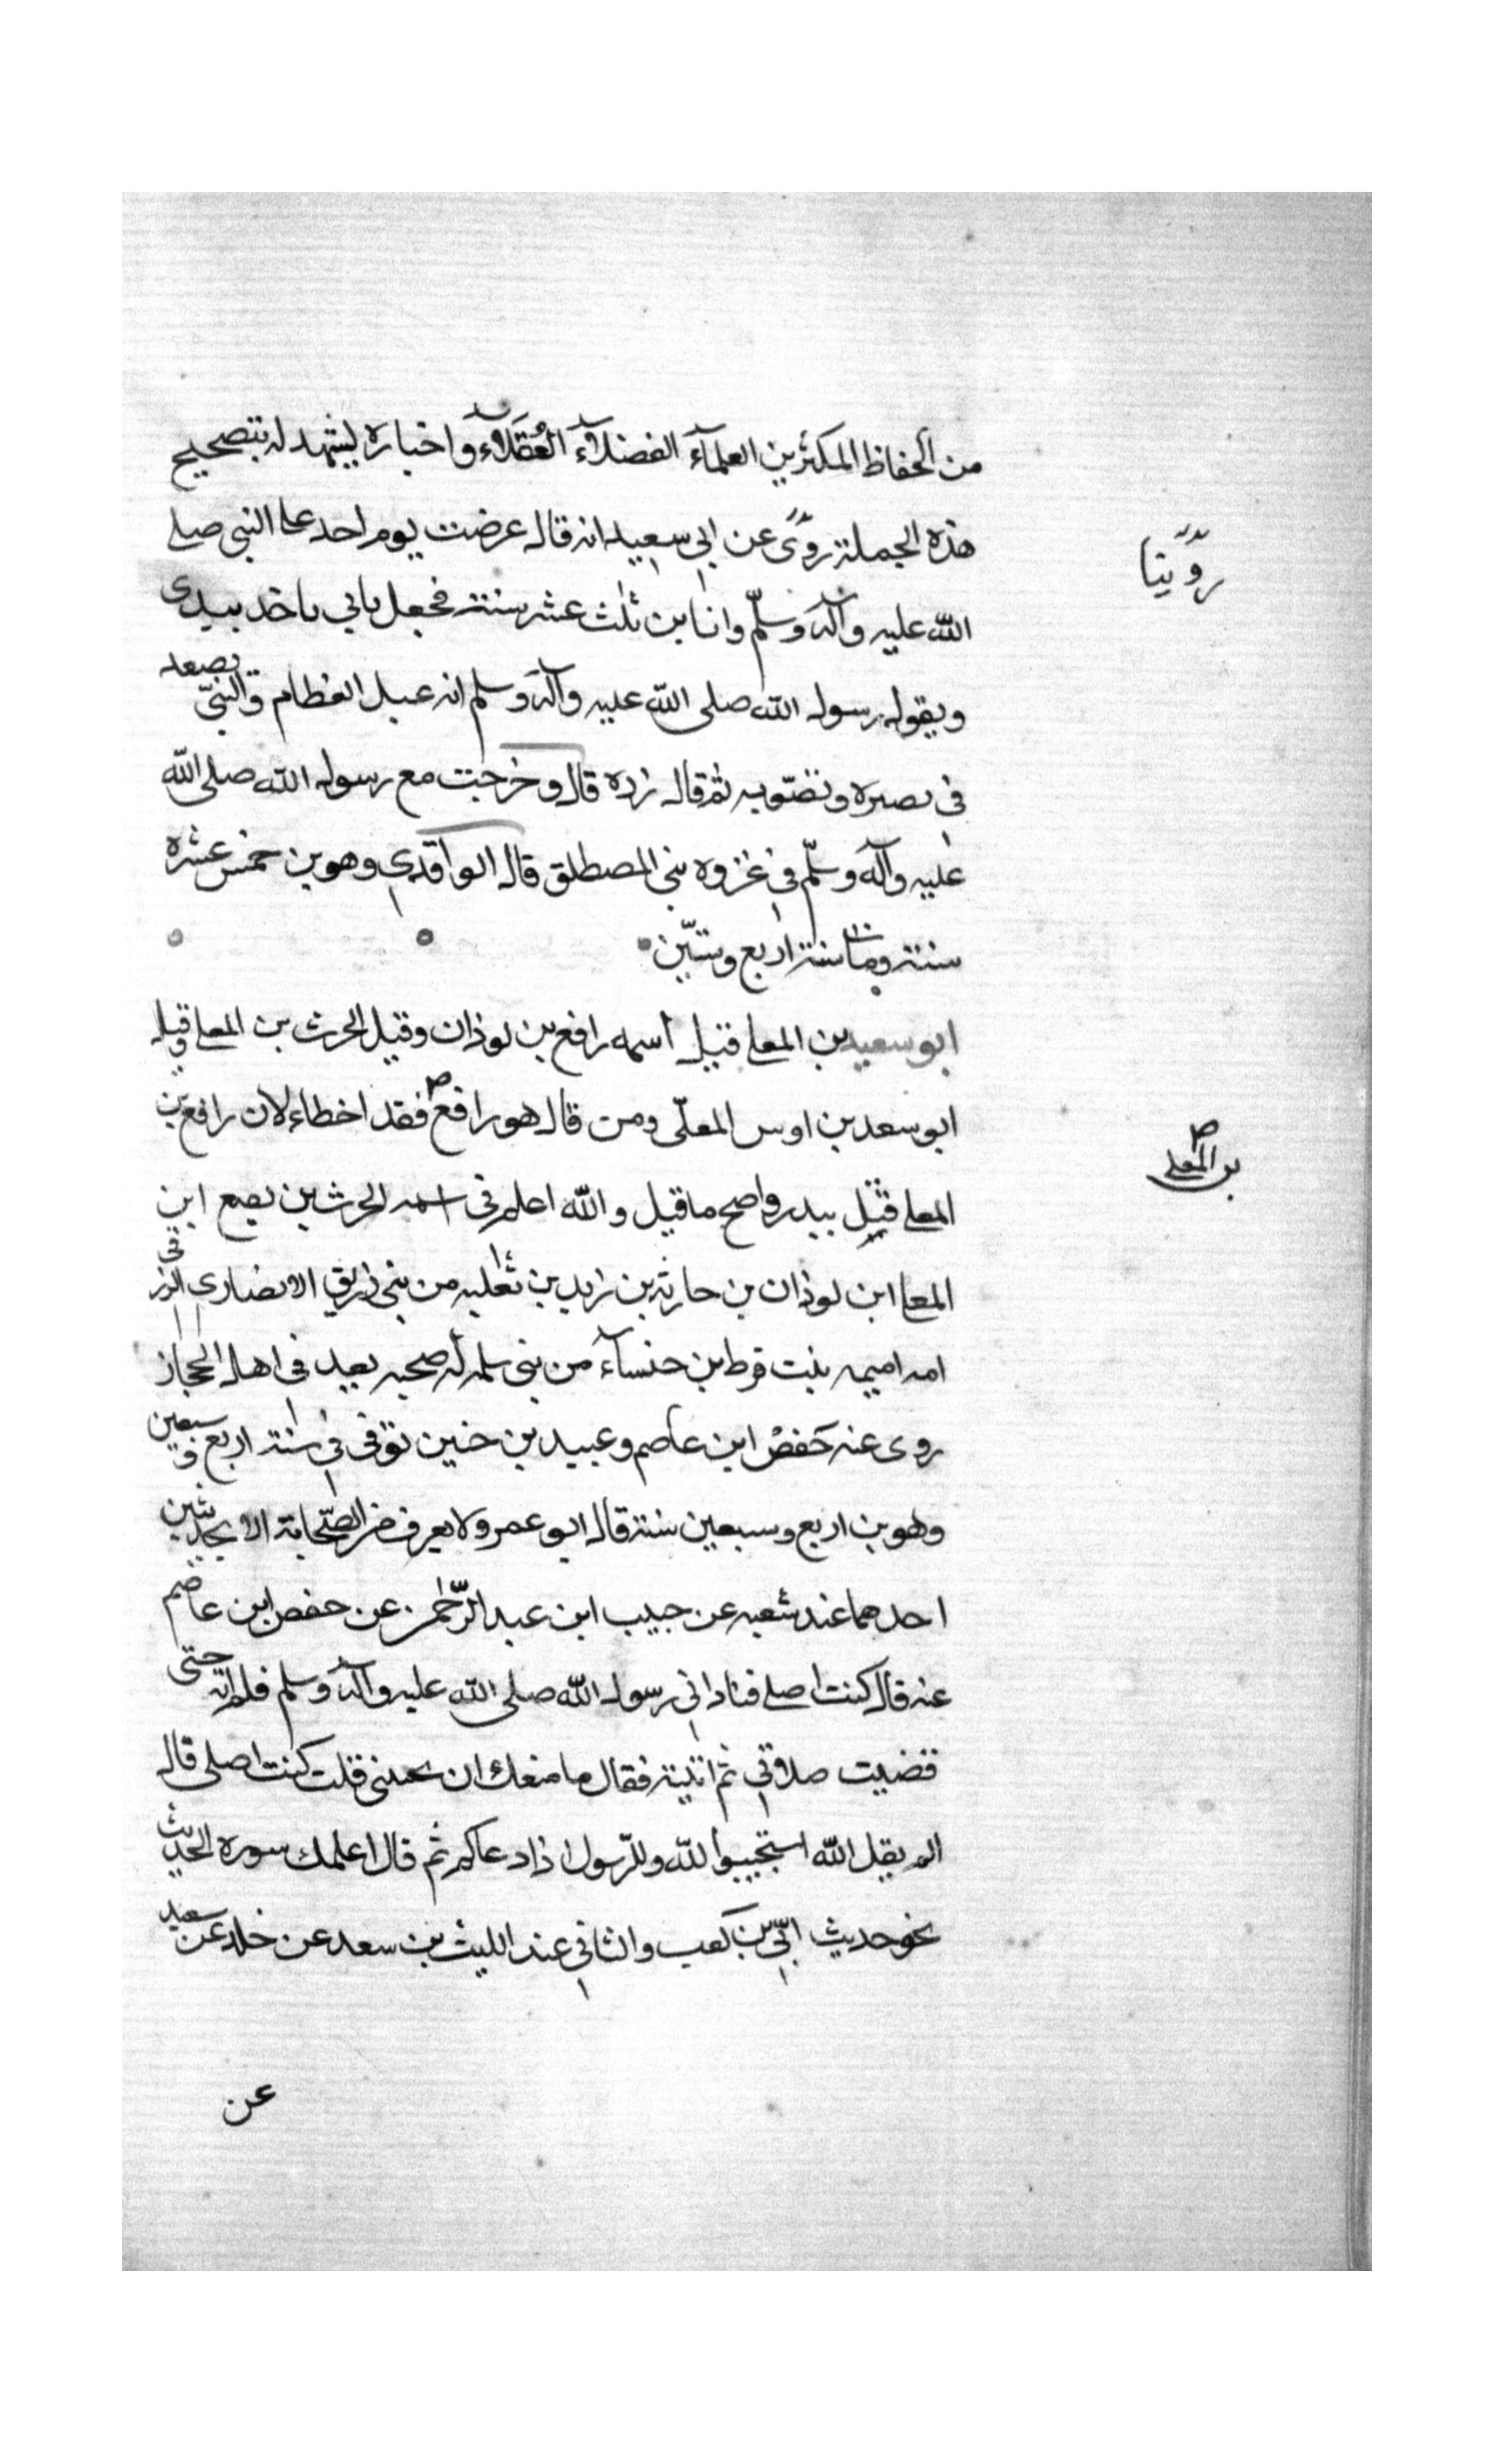 من الحفاظ المكثرين العلمآء الفضلآء العُقَلآء واخباره ليشهد له بتصحيح
هذه الجملة روّى عن ابى سعيد انه قال عرضت يوم احد على النبى صلى
روّينا
الله عليه وآله وسلّم وانا بن ثلث عشر سنة فجعل بابى ياخذ بيدى
ويقول رسول الله صلى الله عليه وآله وسلم انه عبل العظام والنبىّ يصعد
فى بصره ويصوبه ثم قال رده قال وخرجت مع رسول الله صلى الله
عليه وآله وسلّم فى غزوه بنى المصطلق قال الواقدى وهو بن خمس عشره
سنة ومات سنة اربع وستّين
ابو سعيد بن المعلى قيل اسمه رافع بن لوذان وقيل الحرث بن المعلى وقيل
ابو سعد بن اوس المعلّى ومن قال هو رافع فقد اخطاء لان رافع بن
بن المعلى
المعلى قتل ببدر واصح ما قيل والله اعلم فى اسمه الحرث بن بصع ابن
المعلى ابن لوذان بن حارثه بن زيد بن ثعلبه من بنى زريق الانصارى الزرقى
امه اميمه بنت قرط بن خنسآء من بنى سلمه له صحبه يعد فى اهل الحجاز
روى عنه حَفصْ ابن عاصم وعبيد بن حنين توفى فى سنة اربع وسبعين
وهو بن اربع وسبعين سنة قال ابو عمر ولا يعرف فى الصّحابة الا بحديثين
احدهما عند شعبه عن حبيب ابن عبد الرّحمن عن حفص ابن عاصم
عنه قال كنت اصلى فنادانى رسول الله صلى الله عليه وآله وسلم فلم اته حتى
قضيت صلاتى ثم اتيته فقال ما منعك ان تجبنى قلت كنت اصلى قال
الم يقل الله استجيبوا لله وللرّسول اذا دعاكم ثم قال اعلمك سوره الحديث
نحو حديث ابىّ بن كعب والثانى عند الليث بن سعد عن خلد عن سعيد
عن